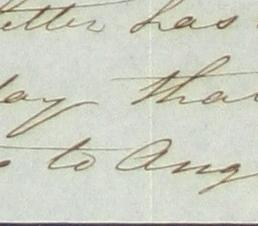 letter has
day that
to Aug